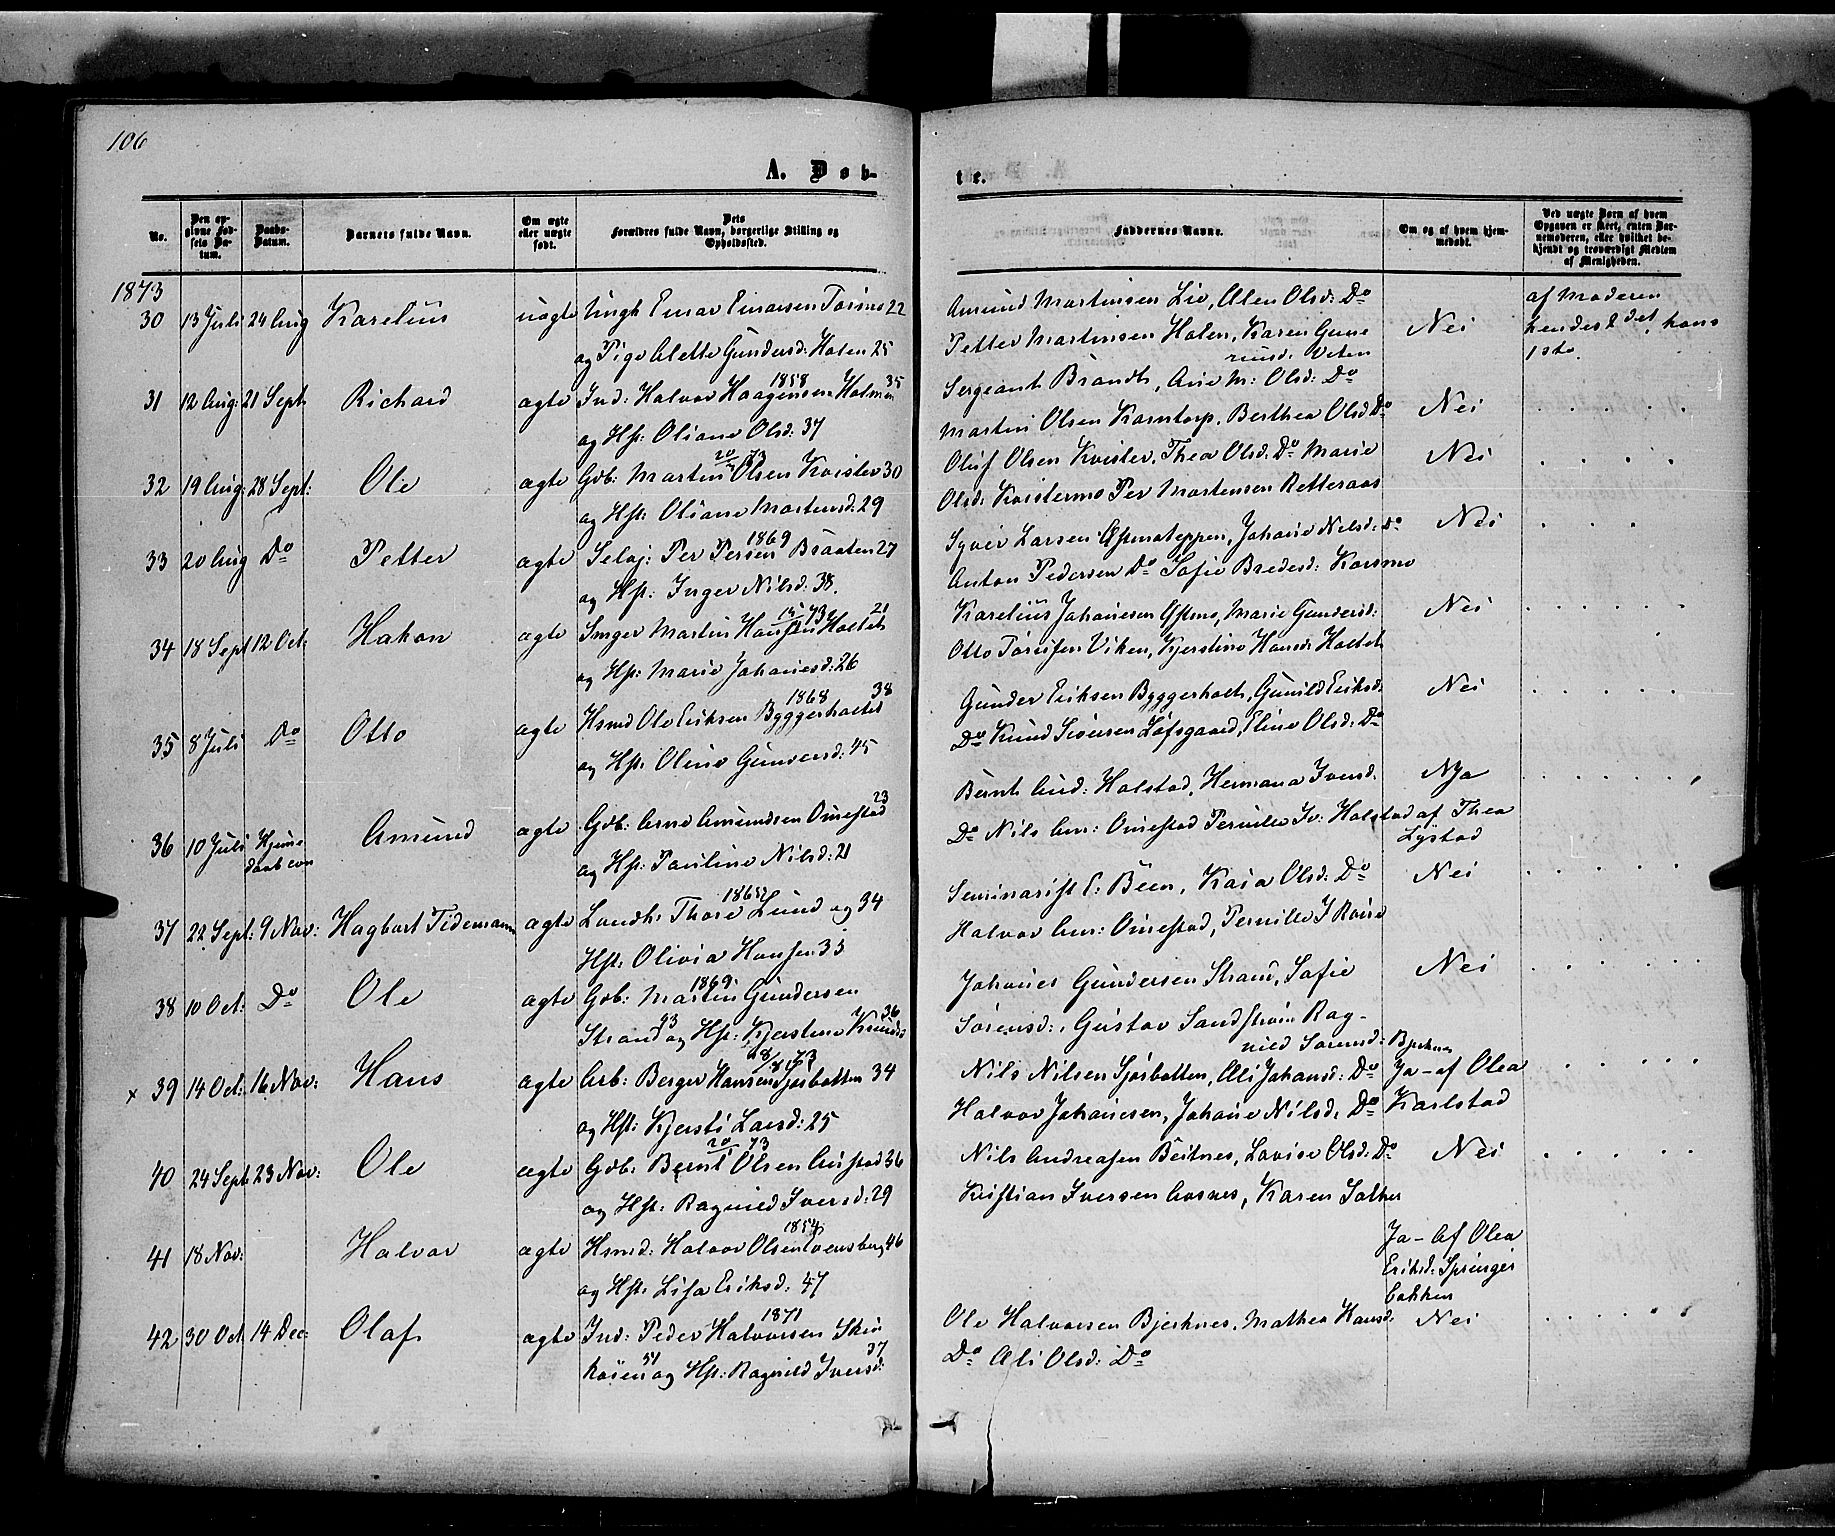 106
A. Døb-
te.
No.
Den opgivne Fødsels Datum.
Daabs-Datum.
Barnets fulde Navn.
Om ægte eller uægte født.
Dets Forældres fulde Navn, borgerlige Stilling og Opholdssted.
Faddernes Navne.
Om og af hvem hjemmedøbt.
Ved uægte Børn af hvem Opgaven er skeet, enten Barnemoderen, eller hvilket bekjendt og troværdigt Medlem af Menigheden.
1873
30 13 Juli 24 Aug Karelius uægte Ungk Einar Einarsen 22
og Pige Alette Gundersd: Holen 25
Amund Martinsen Lie, Olsd: Do
Petter Martinsen Holen, Karen Gune
rusd. Veten
Nei
af Moderen
hendes 2det, hans
1ste.
31 12 Aug: 21 Sept Richard ægte Ind: Halvor Haagensen Holmen 35
1858
og Hst: Oliane Olsd: 37
Sergeant Brandt, Ane M: Olsd: Do
Martin Olsen Korntorp, Berthea Olsd Do
Nei
32 19 Aug: 28 Sept: Ole ægte Gdb: Martin Olsen Kvister 30
og Hst: Oliane Mortensd: 29
Oluf Olsen Kvister, Thea Olsd: Do Marie
Olsd: Kvistermo Per Mortensen Retteraas
Nei
33 20 Aug Do Petter ægte Selej: Per Persen Braaten 27
1869
og Hst: Inger Nilsd: 38.
Syver Larsen Johane Nilsd: Do
Anton Pedersen Do Sofie Bredesd: Korsmo
Nei
34 18 Sept 12 Oct: Hakon ægte Martin Hansen Holtet 21
og Hst: Marie Johanesd: 26
Karelius Johanesen Marie Gundersd:
Otto Viken, Kjerstine Hansd: Holtet
Nei
35 8 Juli Do Otto ægte Hsmd Ole Eriksen Byggerholtet 38
1868
og Hst: Oline Gundersd: 45
Gunder Eriksen Byggerholt, Gunild Eriksd:
Do Knud Siversen Løfsgaard, Eline Olsd: Do
Nei
36 10 Juli Hjemme
daab con Amund ægte Gdb: Arne Amundsen Omestad 23
og Hst: Pauline Nilsd: 21
Bernt And: Holstad, Hermana Iversd.
Do Nils Am: Omestad Pernille Iv: Holstad
Nja
af Thea
Lystad
37 22 Sept: 9 Nov: Hagbart Tidemann ægte Landh: Thore Lund og 34
Hst: Olivia Hansen 35
Seminarist E: Been, Kaia Olsd: Do
Halvor Am: Omestad, Pernille I
Nei
38 10 Oct: Do Ole ægte Gdb: Martin Gundersen
1869
Strand 43 og Hst: Kjerstine Knudsd 36
Johanes Gundersen Strand, Sofie
Sørensd:, Gustav Sandstrøm Rag-
nild Sørensd: Bjerknes
Nei
x 39 14 Oct: 16 Nov: Hans ægte Arb: Berger Hansen Sjørbotten 34
og Hst: Kjersti Larsd: 25
Nils Nilsen Sjørbotten, Ali Johansd: Do
Halvor Johanesen, Johane Nilsd: Do
Ja – af Olea
Karlstad
40 24 Sept 23 Nov: Ole ægte Gdb: Bernt Olsen Austad 36
og Hst: Ragnild Iversd: 29
Nils Andreasen Beitnes, Lovise Olsd: Do
Kristian Iversen Aasnes, Karen Sather
Nei
41 18 Nov: Halvor ægte Hsmd: Halvor Olsen 46
1854
og Hst: Lisa Eriksd: 47
Ja – Af Olea
Eriksd: Springer
bakken
42 30 Oct 14 Dec: Olaf ægte Ind: Peder Halvorsen
1871
51 og Hst: Ragnild Iversd: 37
Ole Halvorsen Bjerknes, Mathea Hansd:
Do Ali Olsd: Do
Nei